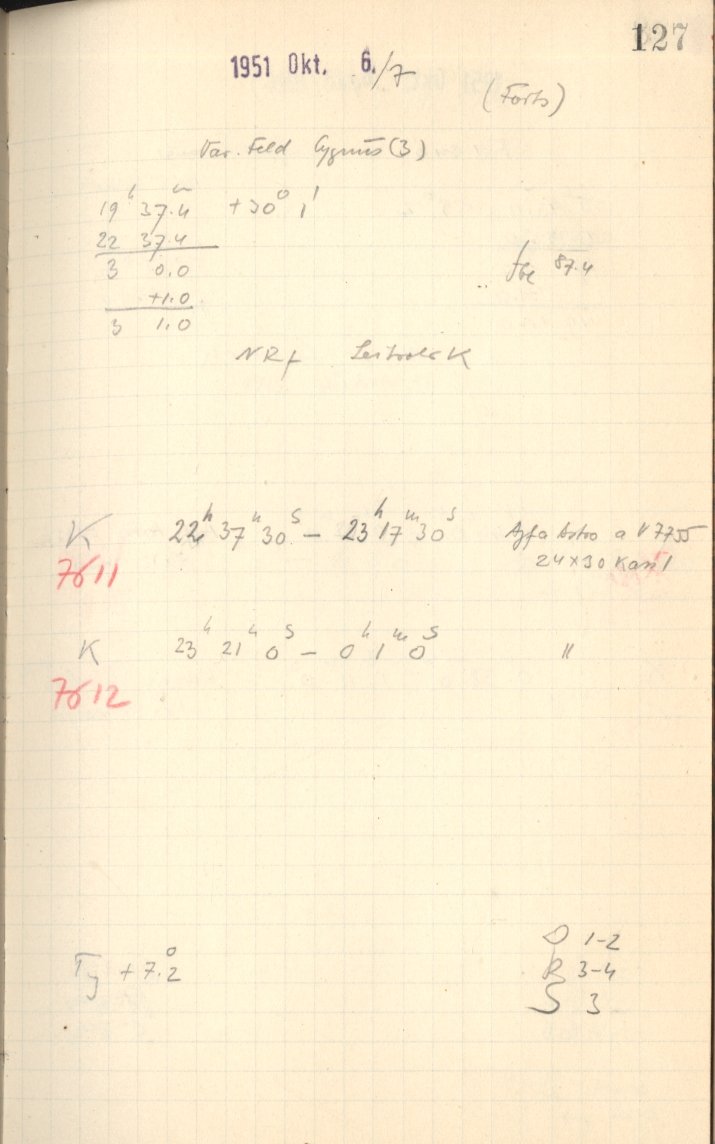 127
1951 Okt. 6./7
(Forts)
Var. Feld Cygnus (3)
19ʰ 37.4ᵐ +30° 1'
22 37.4
3 0.0
+1.0
3 1.0
87.4
NRf K
K 22ʰ 37ᵐ 30ˢ – 23ʰ 17ᵐ 30ˢ Agfa Astro a V7755
7611 24x30 Kass 1
K 23ʰ 21ᵐ 0ˢ – 0ʰ 1ᵐ 0ˢ "
7612
D 1-2
Ty + 7.°2 R 3-4
S 3